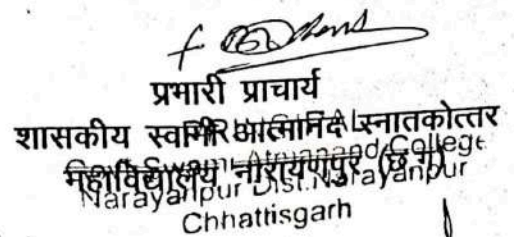 प्रभारी प्राचार्य
शासकीय स्वामी आत्मानंद स्नातकोत्तर
PRINCIPAL
महाविद्यालय नारायणपुर (छ.ग.)
Govt. Swami Atmanand College
Narayanpur Dist. Narayanpur
Chhattisgarh